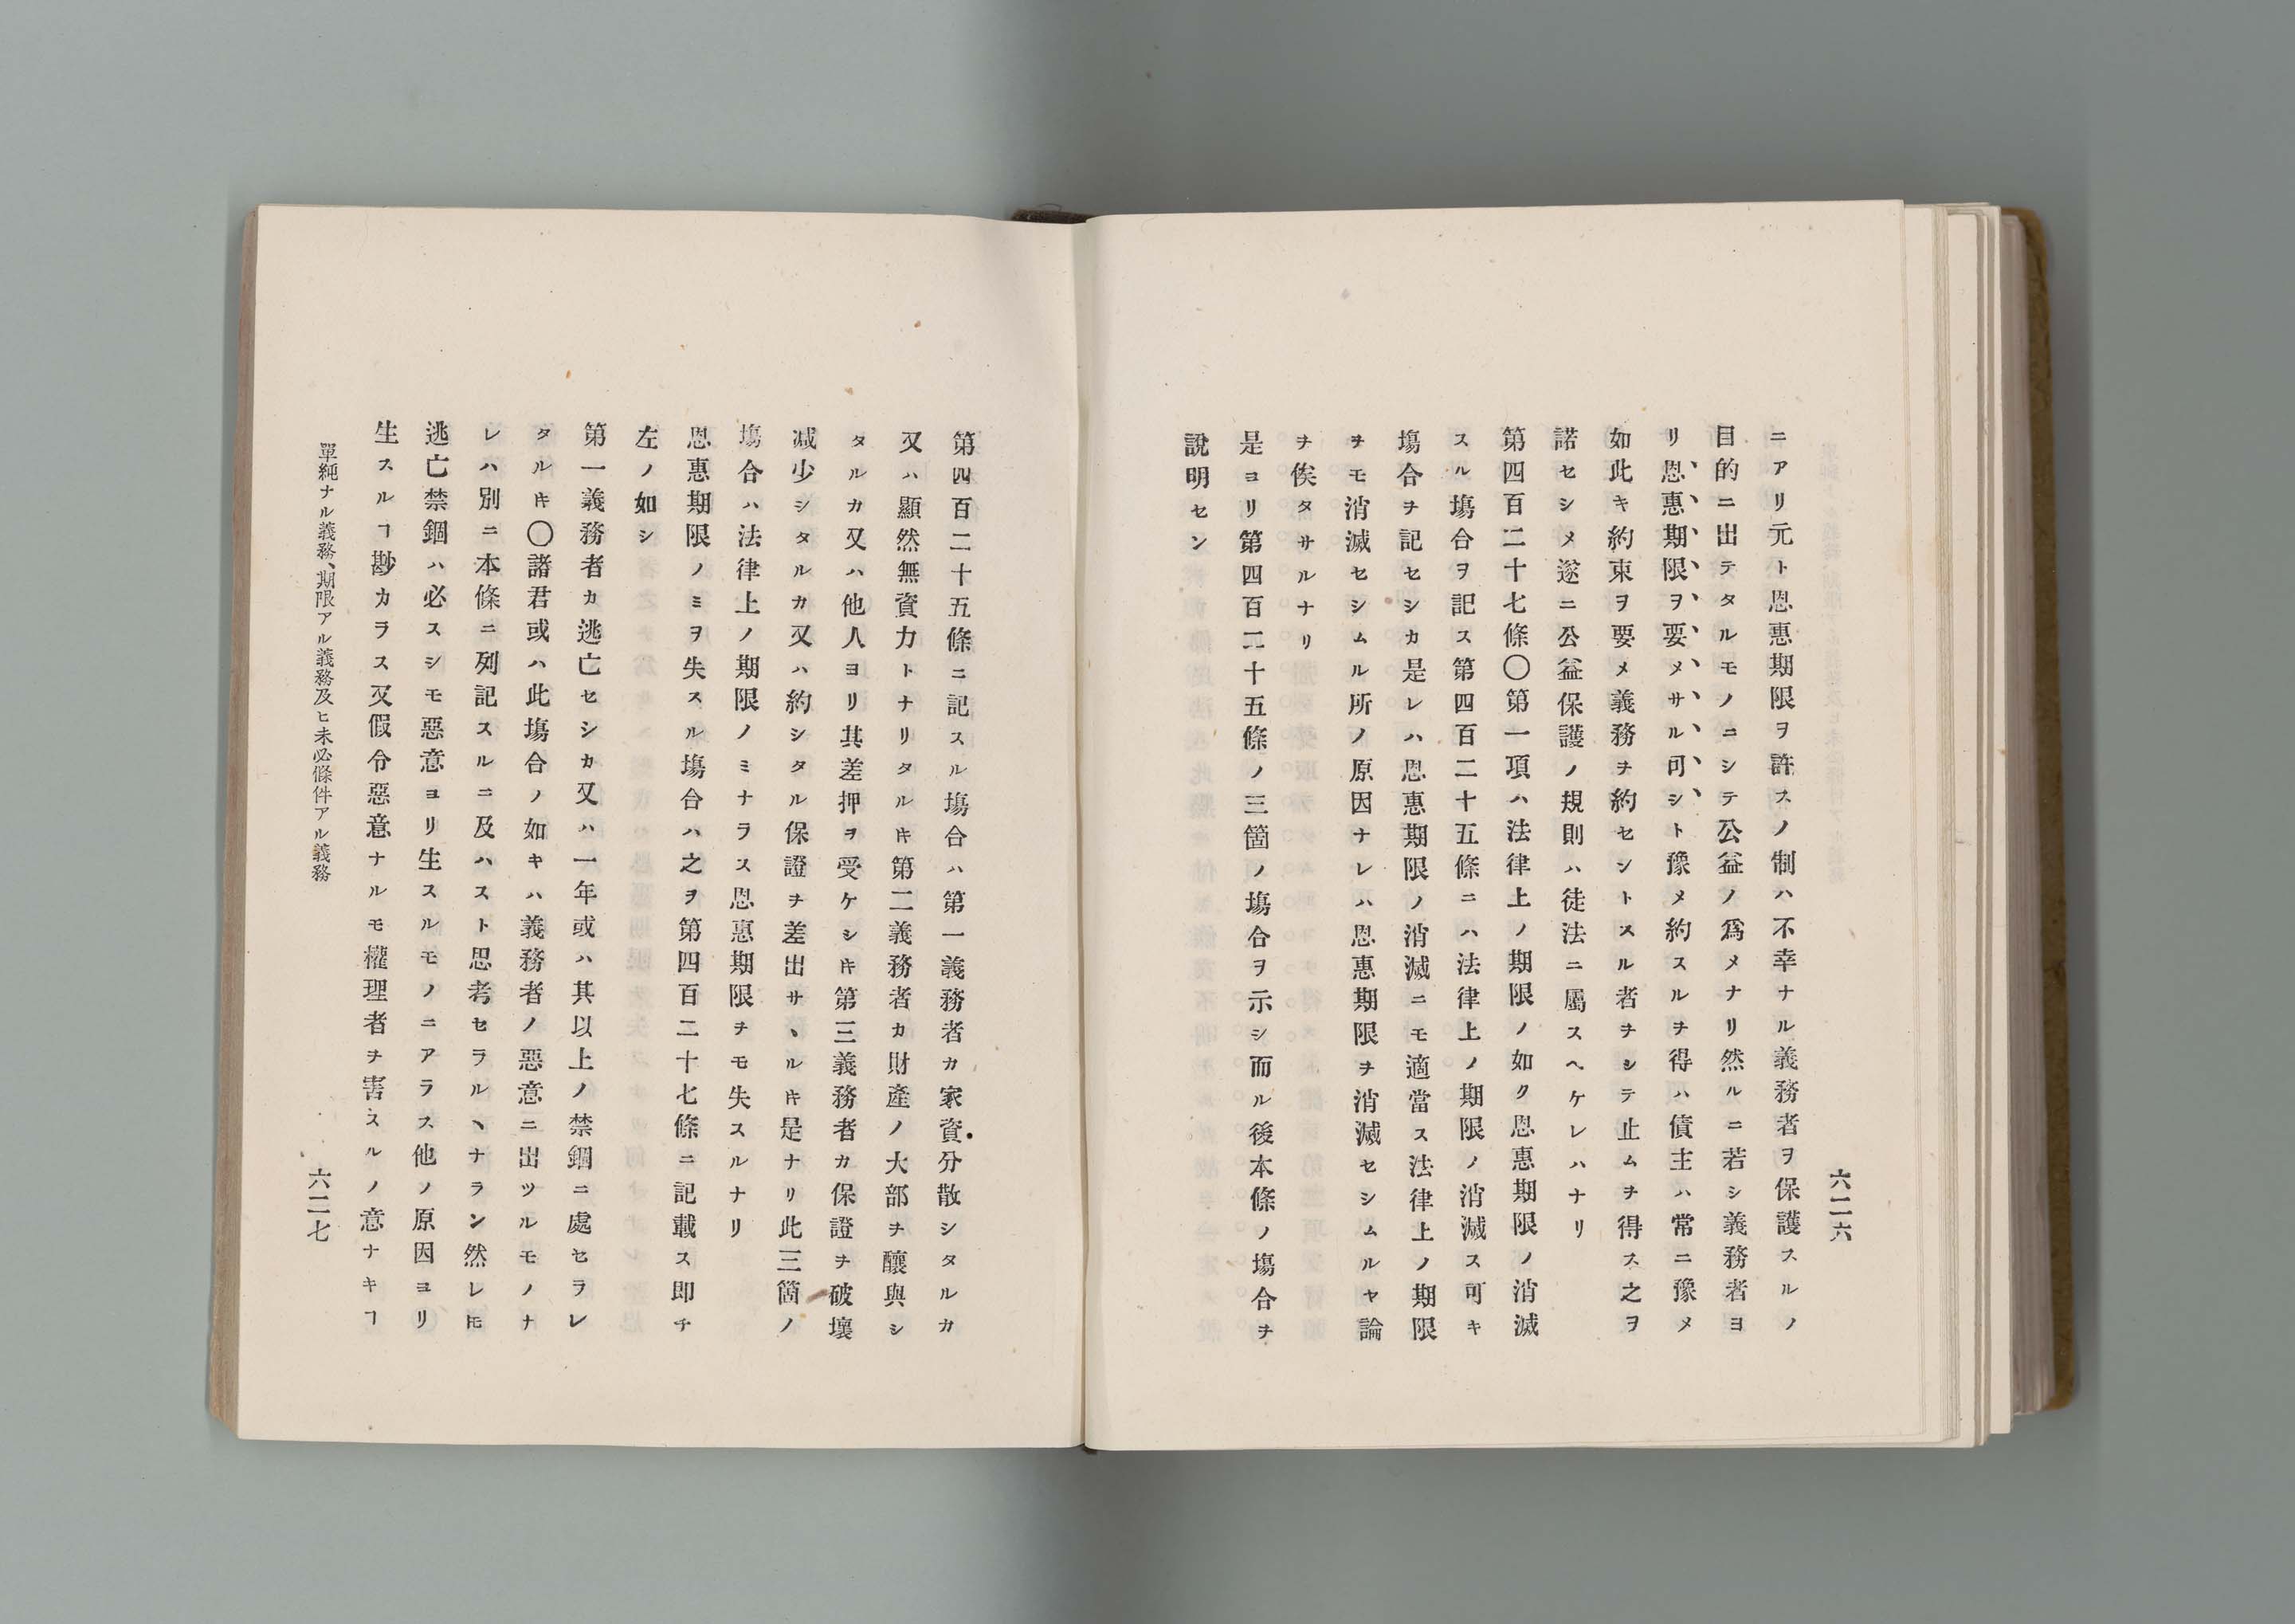 六二六
ニアリ元ト恩惠期限ヲ許スノ制ハ不幸ナル義務者ヲ保護スルノ
目的ニ出テタルモノニシテ公益ノ爲メナリ然ルニ若シ義務者ヨ
リ恩惠期限ヲ要メサル可シト豫メ約スルヲ得ハ債主ハ常ニ豫メ
如此キ約束ヲ要メ義務ヲ約セシトスル者ヲシテ止ムヲ得ス之ヲ
諾セシメ遂ニ公益保護ノ規則ハ徒法ニ屬スヘケレハナリ
第四百二十七條〇第一項ハ法律上ノ期限ノ如ク恩惠期限ノ消滅
スル塲合ヲ記ス第四百二十五條ニハ法律上ノ期限ノ消滅ス可キ
塲合ヲ記セシカ是レハ恩惠期限ノ消滅ニモ適當ス法律上ノ期限
ヲモ消滅セシムル所ノ原因ナレハ恩惠期限ヲ消滅セシムルヤ論
ヲ俟タサルナリ
是ヨリ第四百二十五條ノ三箇ノ塲合ヲ示シ而ル後本條ノ塲合ヲ
說明セン
第四百二十五條ニ記スル塲合ハ第一義務者カ家資分散シタルカ
又ハ顯然無資力トナリタルキ第二義務者カ財產ノ大部ヲ釀與シ
タルカ又ハ他人ヨリ其差押ヲ受ケシキ第三義務者カ保證ヲ破壞
减少シタルカ又ハ約シタル保證ヲ差出サヽルキ是ナリ此三箇ノ
塲合ハ法律上ノ期限ノミナラス恩惠期限ヲモ失スルナリ
恩惠期限ノミヲ失スル塲合ハ之ヲ第四百二十七條ニ記載ス即チ
左ノ如シ
第一義務者カ逃亡セシカ又ハ一年或ハ其以上ノ禁錮ニ處セラレ
タルキ〇諸君或ハ此塲合ノ如キハ義務者ノ惡意ニ出ツルモノナ
レハ別ニ本條ニ列記スルニ及ハスト思考セラルヽナラン然レ𪜈
逃亡禁錮ハ必スシモ惡意ヨリ生スルモノニアラス他ノ原因ヨリ
生スルヿ尠カラス又假令惡意ナルモ權理者ヲ害スルノ意ナキヿ
單純ナル義務、期限アル義務及ヒ未必條件アル義務
六二七